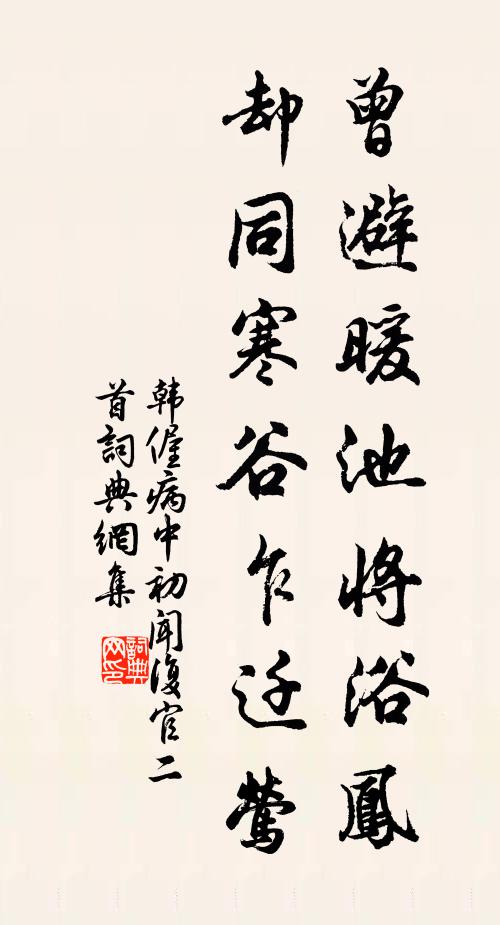 曾避暖池將浴鳳
却同寒谷乍迁鶯
韩偓病中初闻復官二
首詞典網集
詞典
网印